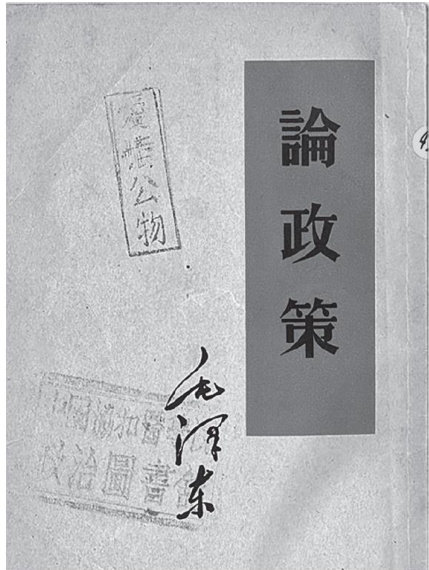 論政策
愛惜公物
毛澤东
政治圖書